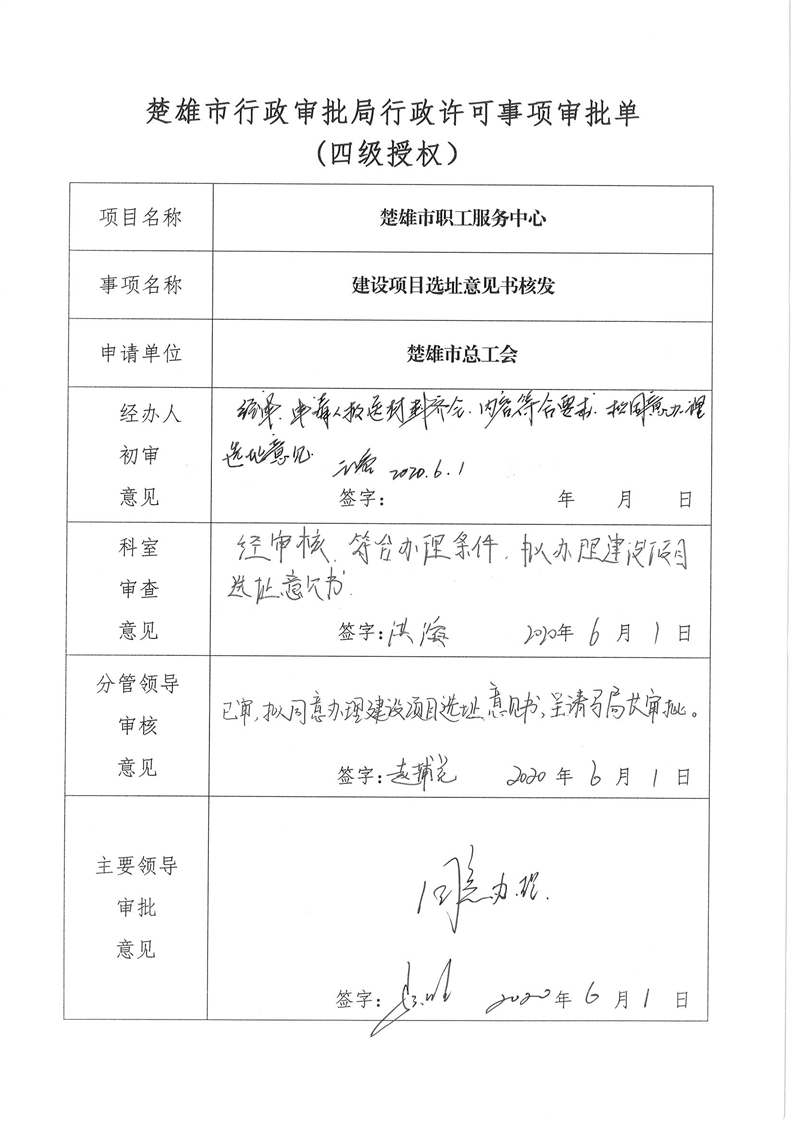 楚雄市行政审批局行政许可事项审批单
(四级授权)
项目名称 楚雄市职工服务中心
事项名称 建设项目选址意见书核发
申请单位 楚雄市总工会
经办人
初审
意见
经审,申请人报送材料齐全,内容符合要求,拟同意办理
选址意见
2020.6.1
签字: 年 月 日
科室
审查
意见
经审核,符合办理条件,拟办理建设项目
选址意见书.
签字:洪 2020年6月1日
分管领导
审核
意见
已审,拟同意办理建设项目选址意见书,呈请 局长审批。
签字:赵 2020年6月1日
主要领导
审批
意见
同意办理.
签字: 2020年6月1日